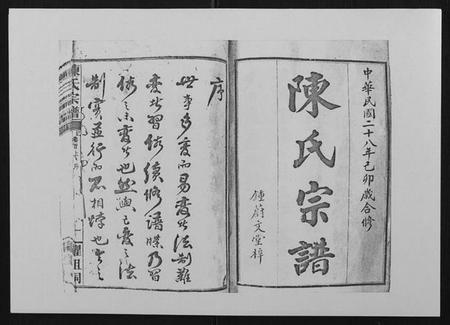 中華民國二十八年己卯歲合修
陳氏宗譜
鍾蔚文堂梓
序
世事多變而易變者法制難
變者習俗續修譜牒乃習
俗之不變者也然必變之法
制實並行而不相悖也
陳氏宗譜